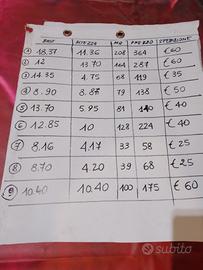 BASE ALTEZZA MQ PREZZO SPEDIZIONE
1 18.37 11.36 208 364 €60
2 12 13.70 164 287 €60
3 14.35 4.75 68 119 €35
4 8.90 8.87 79 138 €50
5 13.70 5.95 81 140 €40
6 12.85 10 128 224 €40
7 8.16 4.17 33 58 €25
8 8.70 4.20 39 68 €25
9 10.40 10.40 100 175 €60
subito